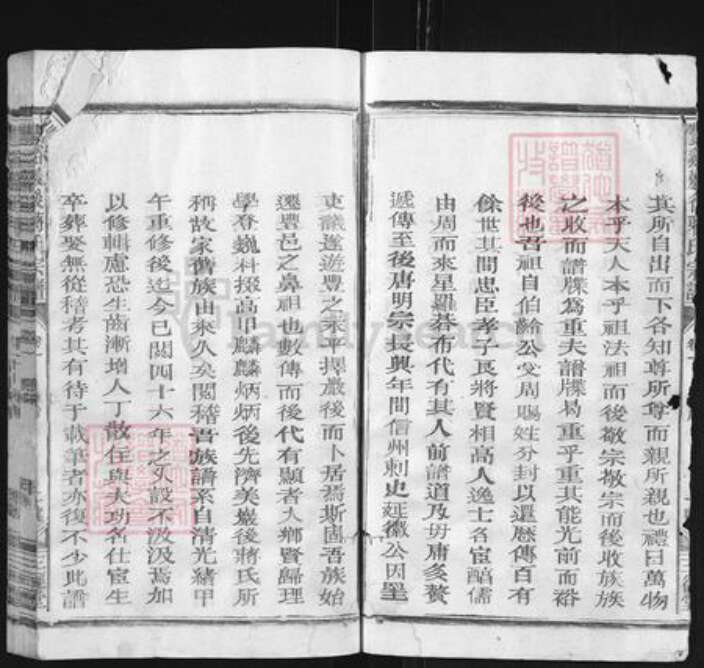 其所自出而下各知尊所尊而親所親也禮曰萬物
本乎天人本乎祖法祖而後敬宗敬宗而後收族族
之收而譜牒為重夫譜牒曷重乎重其能光前而裕
後也吾祖自伯齡公受周賜姓分封以還歷傳百有
餘世其間忠臣孝子良將賢相高人逸士名宦醇儒
由周而來星羅碁布代有其人前譜道及毋庸多贅
遞傳至後唐明宗長興年間信州刺史延徽公因星
吏議遂遊豐之永平擇巖後而卜居焉斯固吾族始
遷豐邑之鼻祖也數傳而後代有顯者入鄉賢歸理
學登巍科掇高甲麟麟炳炳後先濟美巖後蔣氏所
稱故家舊族由來久矣閱稽吾族譜系自清光緒甲
午重修後迄今已閱四十六年之久設不汲汲焉加
以修輯慮恐生齒漸增人丁散住與夫功名仕宦生
卒葬娶無從稽考其有待于載筆者亦復不少此譜
FamilySearch